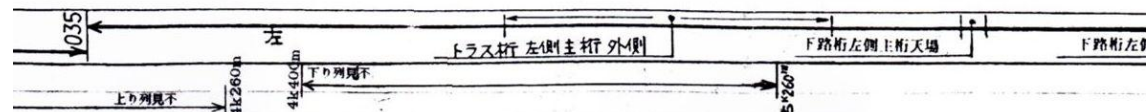 035
左
トラス桁 左側主桁 外側
下路桁左側主桁天場
下路桁左側
上り列見不
4k260m
4k400m
下り列見不
5k260m